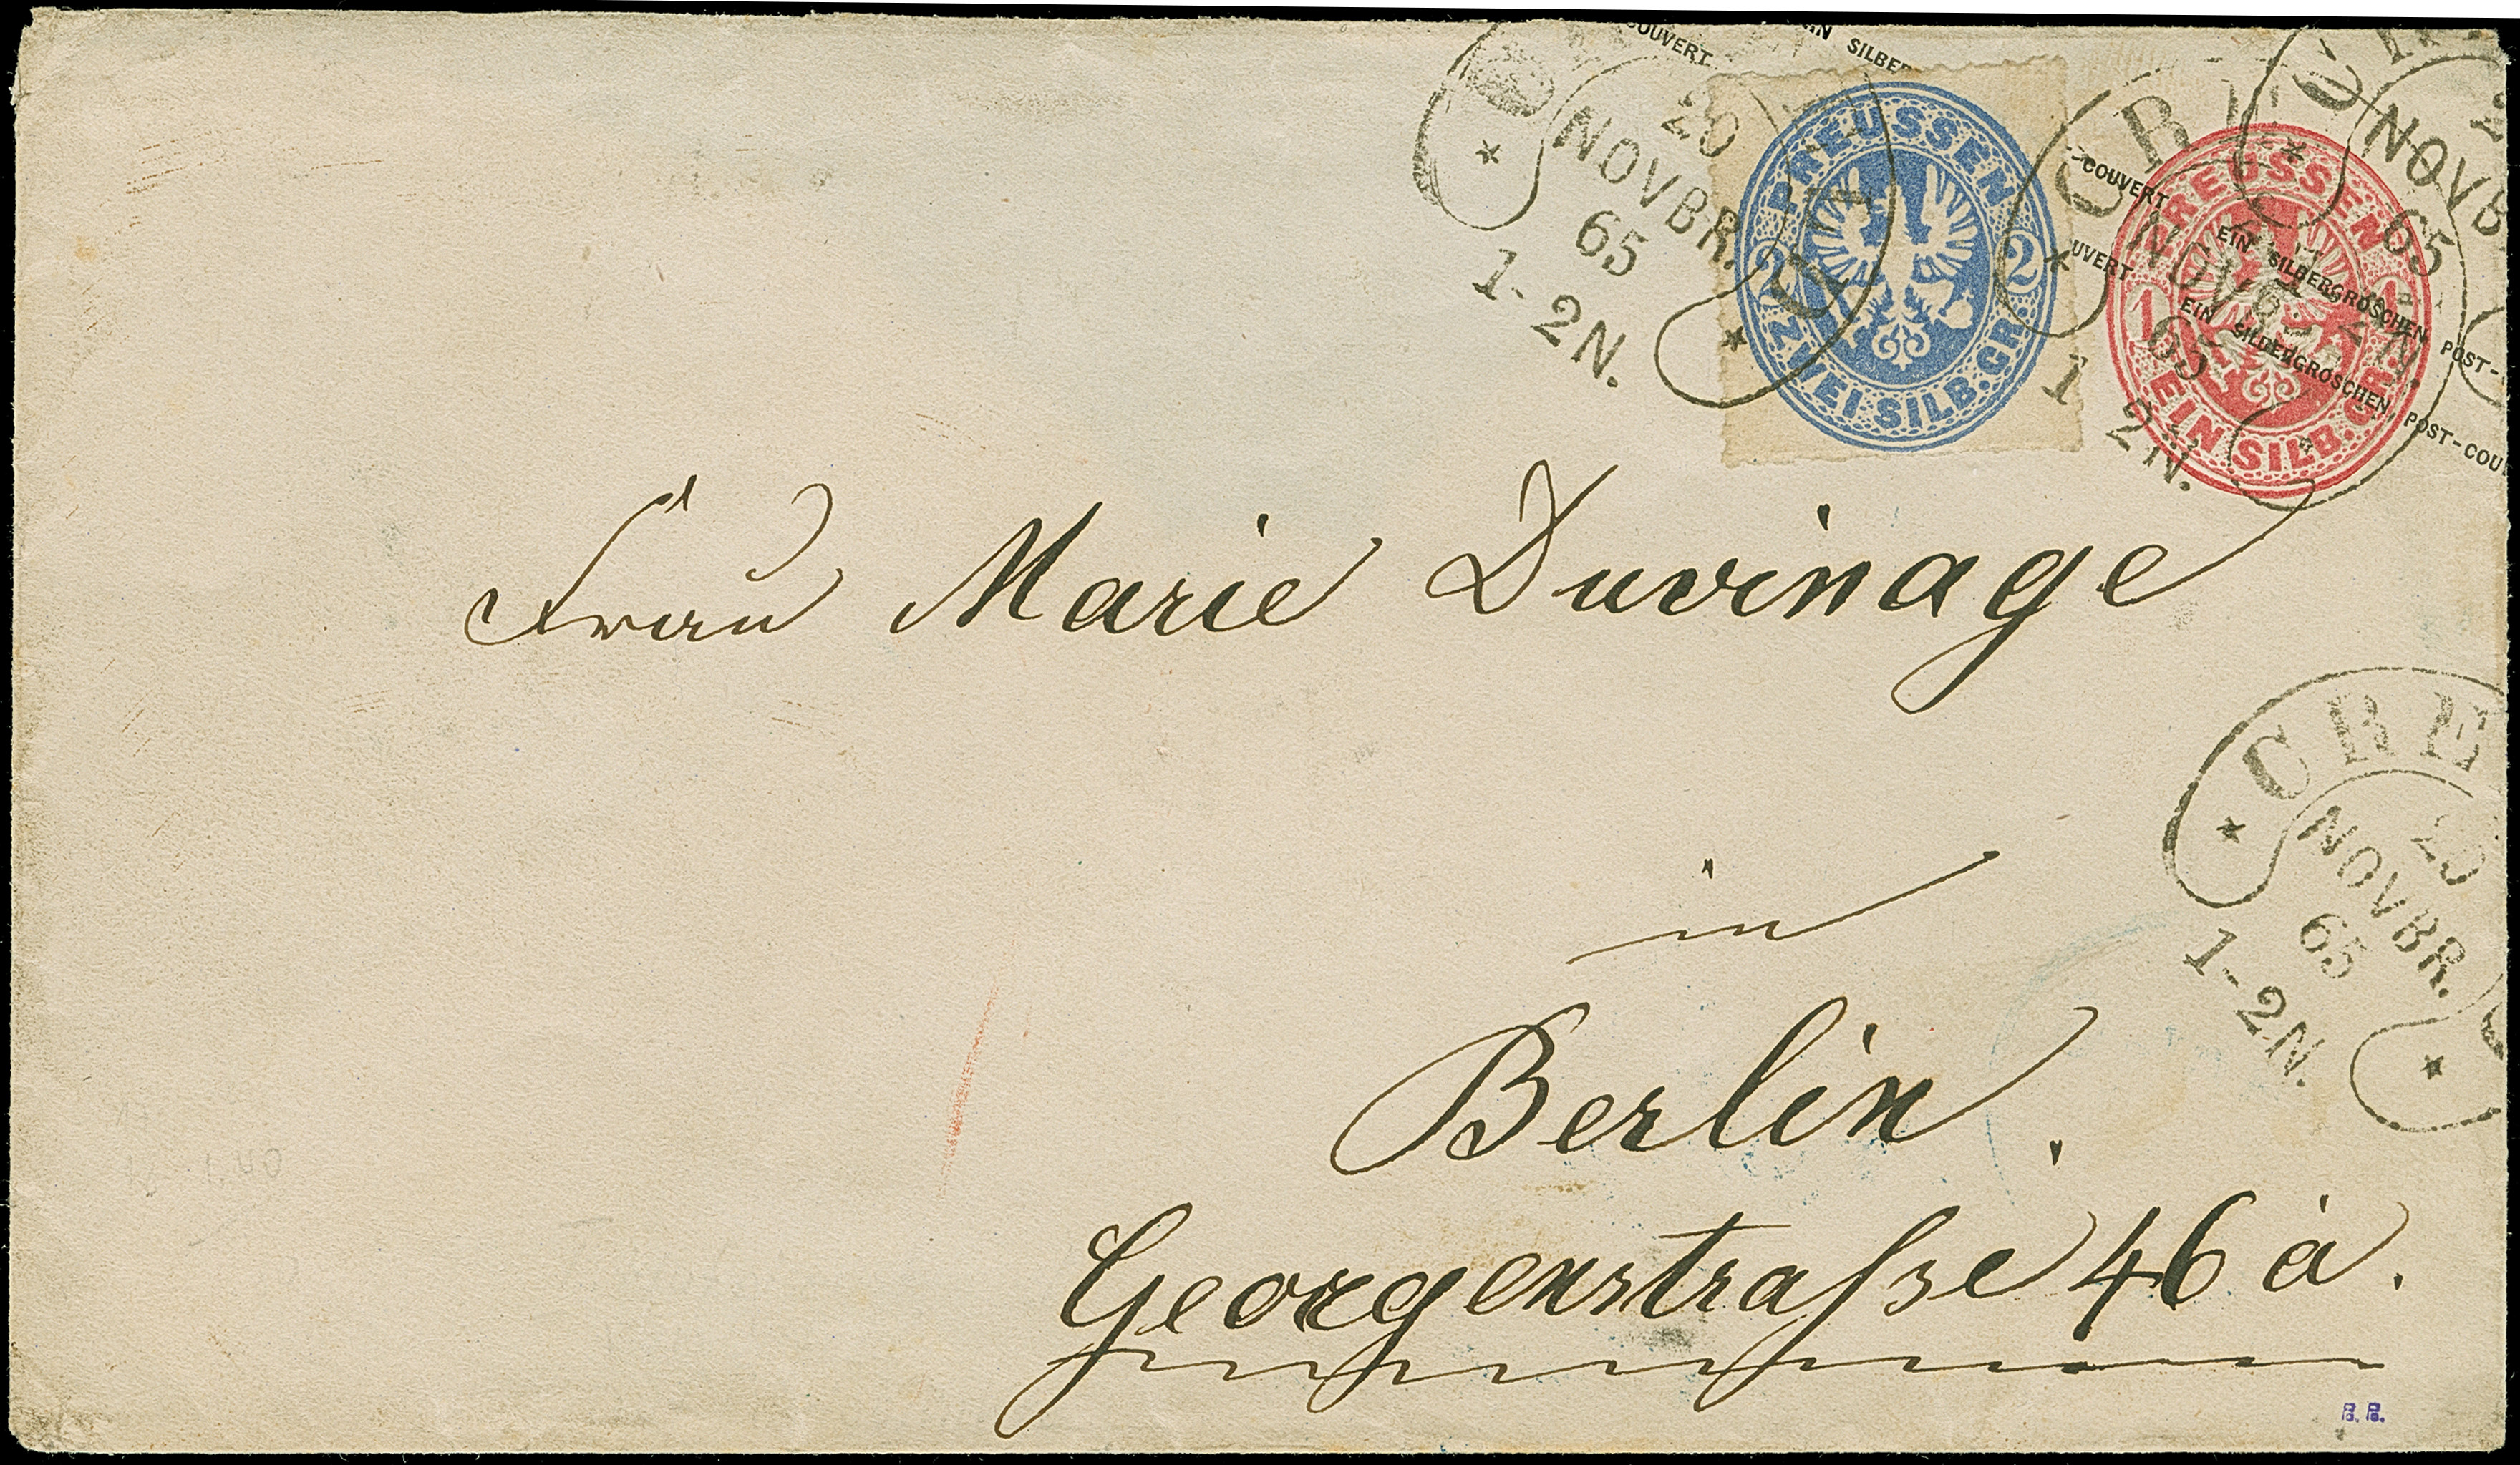 COUVERT
EIN SILBER
20
NOVBR.
65
1-2N.
PREUSSEN
2 2
ZWEI SILB.GR.
CRE
NOVBR
65
1 2N.
NOVB
65
2N.
-COUVERT
UVERT
PREUSSEN
1 1
EIN SILB.GR.
EIN SILBERGROSCHEN POST-
EIN SILBERGROSCHEN POST-COU
Frau Marie Duvinage
CRE
20
NOVBR.
65
1-2N.
in
Berlin.
Georgenstraße 46 a.